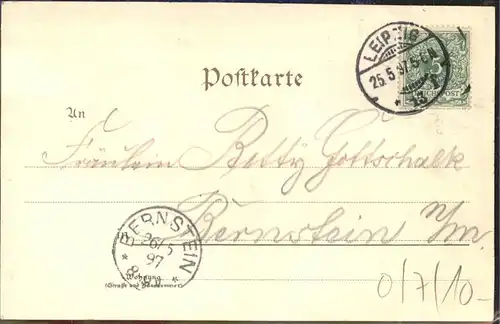 LEIPZIG
25.5.97.5-6N.
* 13 *
5
REICHSPOST
Postkarte
An
Fräulein Betty Gottschalk
Bernstein n/m.
BERNSTEIN
26/5
97
Wohnung
(Straße und Hausnummer)
0/7/10-